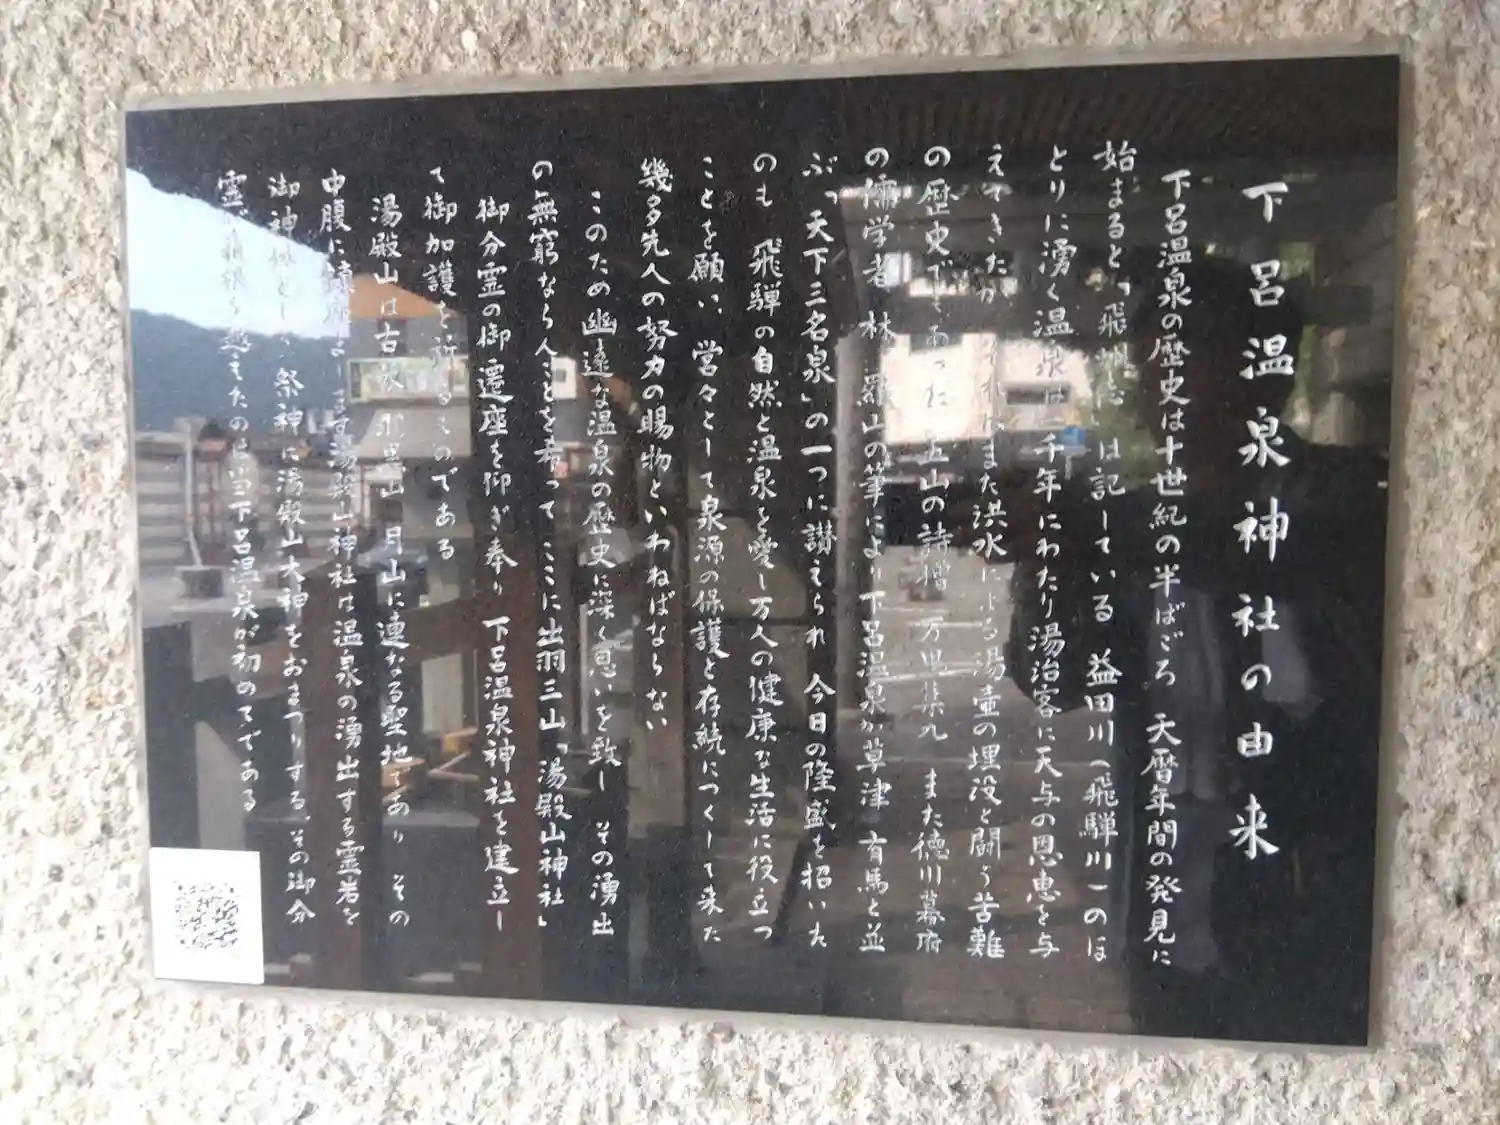 下呂温泉神社の由来
下呂温泉の歴史は十世紀の半ばごろ 天暦年間の発見に
始まると「飛騨志」は記している 益田川(飛騨川)のほ
とりに湧く温泉は 千年にわたり湯治客に天与の恩恵を与
えてきたが それはまた洪水による湯壷の埋没と闘う苦難
の歴史でもあった 五山の詩僧 万里集九 また徳川幕府
の儒学者 林 羅山の筆により 下呂温泉が草津 有馬と並
ぶ「天下三名泉」の一つに讃えられ 今日の隆盛を招いた
のも 飛騨の自然と温泉を愛し 万人の健康な生活に役立つ
ことを願い、営々として泉源の保護と存続につくして来た
幾多先人の努力の賜物といわねばならない
このため幽遠な温泉の歴史に深く思いを致し その湧出
の無窮ならんことを希って ここに出羽三山「湯殿山神社」
御分霊の御遷座を仰ぎ奉り 下呂温泉神社を建立し
て御加護を祈るものである
湯殿山は古来 羽黒山 月山に連なる聖地であり その
中腹に鎮座します湯殿山神社は温泉の湧出する霊岩を
御神体として 祭神に湯殿山大神をおまつりする、その御分
霊が箱根を越えたのは当下呂温泉が初めてである